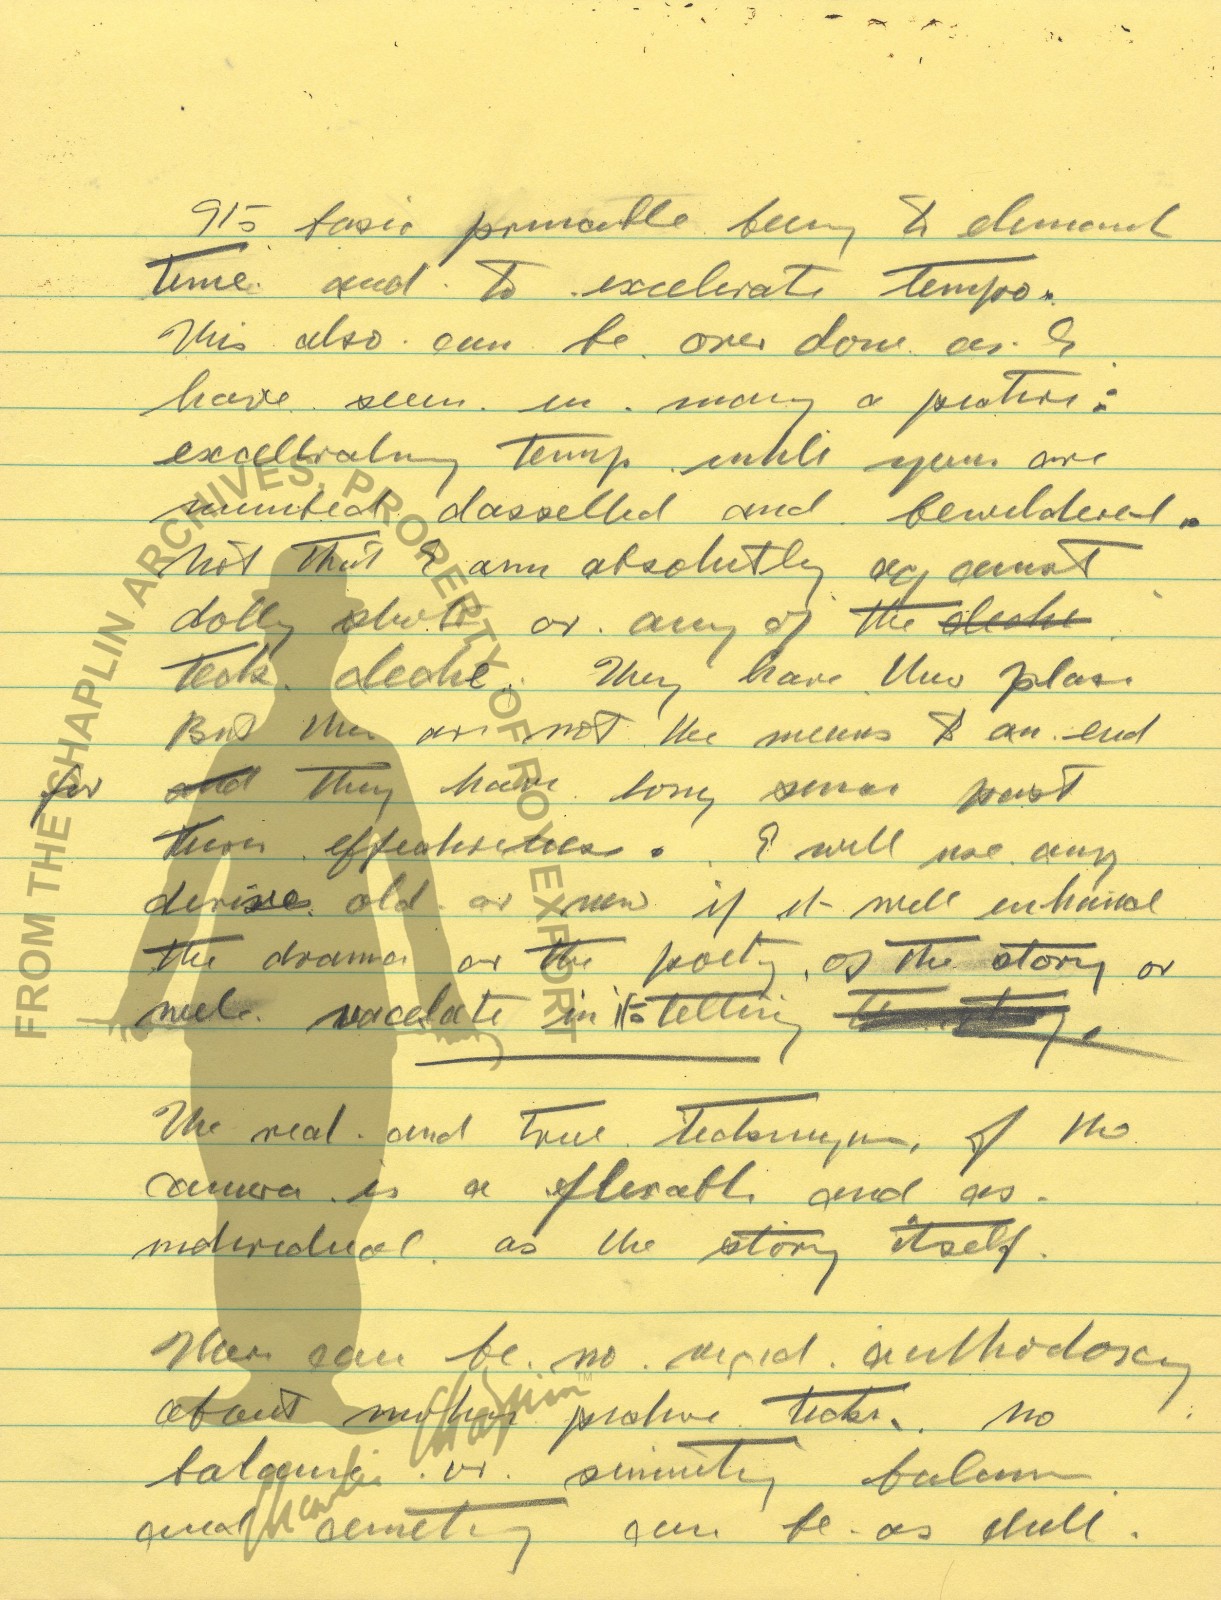 its basic primarlle being to demand
time. and to excelerate tempo.
This also can be over done as I
have seen in many a picture:
excellerating temp until you are
dasselled and bewildered.
Not that I am absolutly against
dolly shots or any of the
teck cleche. They have their place
But they are not the means to an end
for and they have long since past
their effectiveness. I will use any
devise old or new if it will enhance
the drama or the poety of the story or
in its telling
The real and true of the
camera is a flexable and as
individual as the story itself.
There can be no rigid authodoxy
about motion picture teck. no
or simmitry balance
and cemetry can be as dull.
FROM THE CHAPLIN ARCHIVES, PROPERTY OF ROY EXPORT
Charlie Chaplin
TM